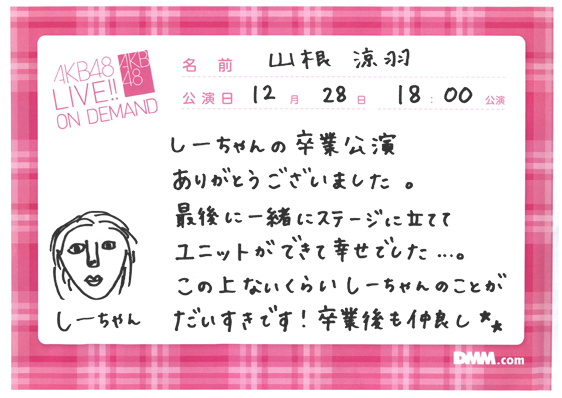 AKB48
LIVE!!
ON DEMAND
AKB
48
名前 山根 涼羽
公演日 12月 28日 18:00公演
しーちゃんの卒業公演
ありがとうございました。
最後に一緒にステージに立てて
ユニットができて幸せでした…。
この上ないくらいしーちゃんのことが
だいすきです!卒業後も仲良し
しーちゃん
DMM.com